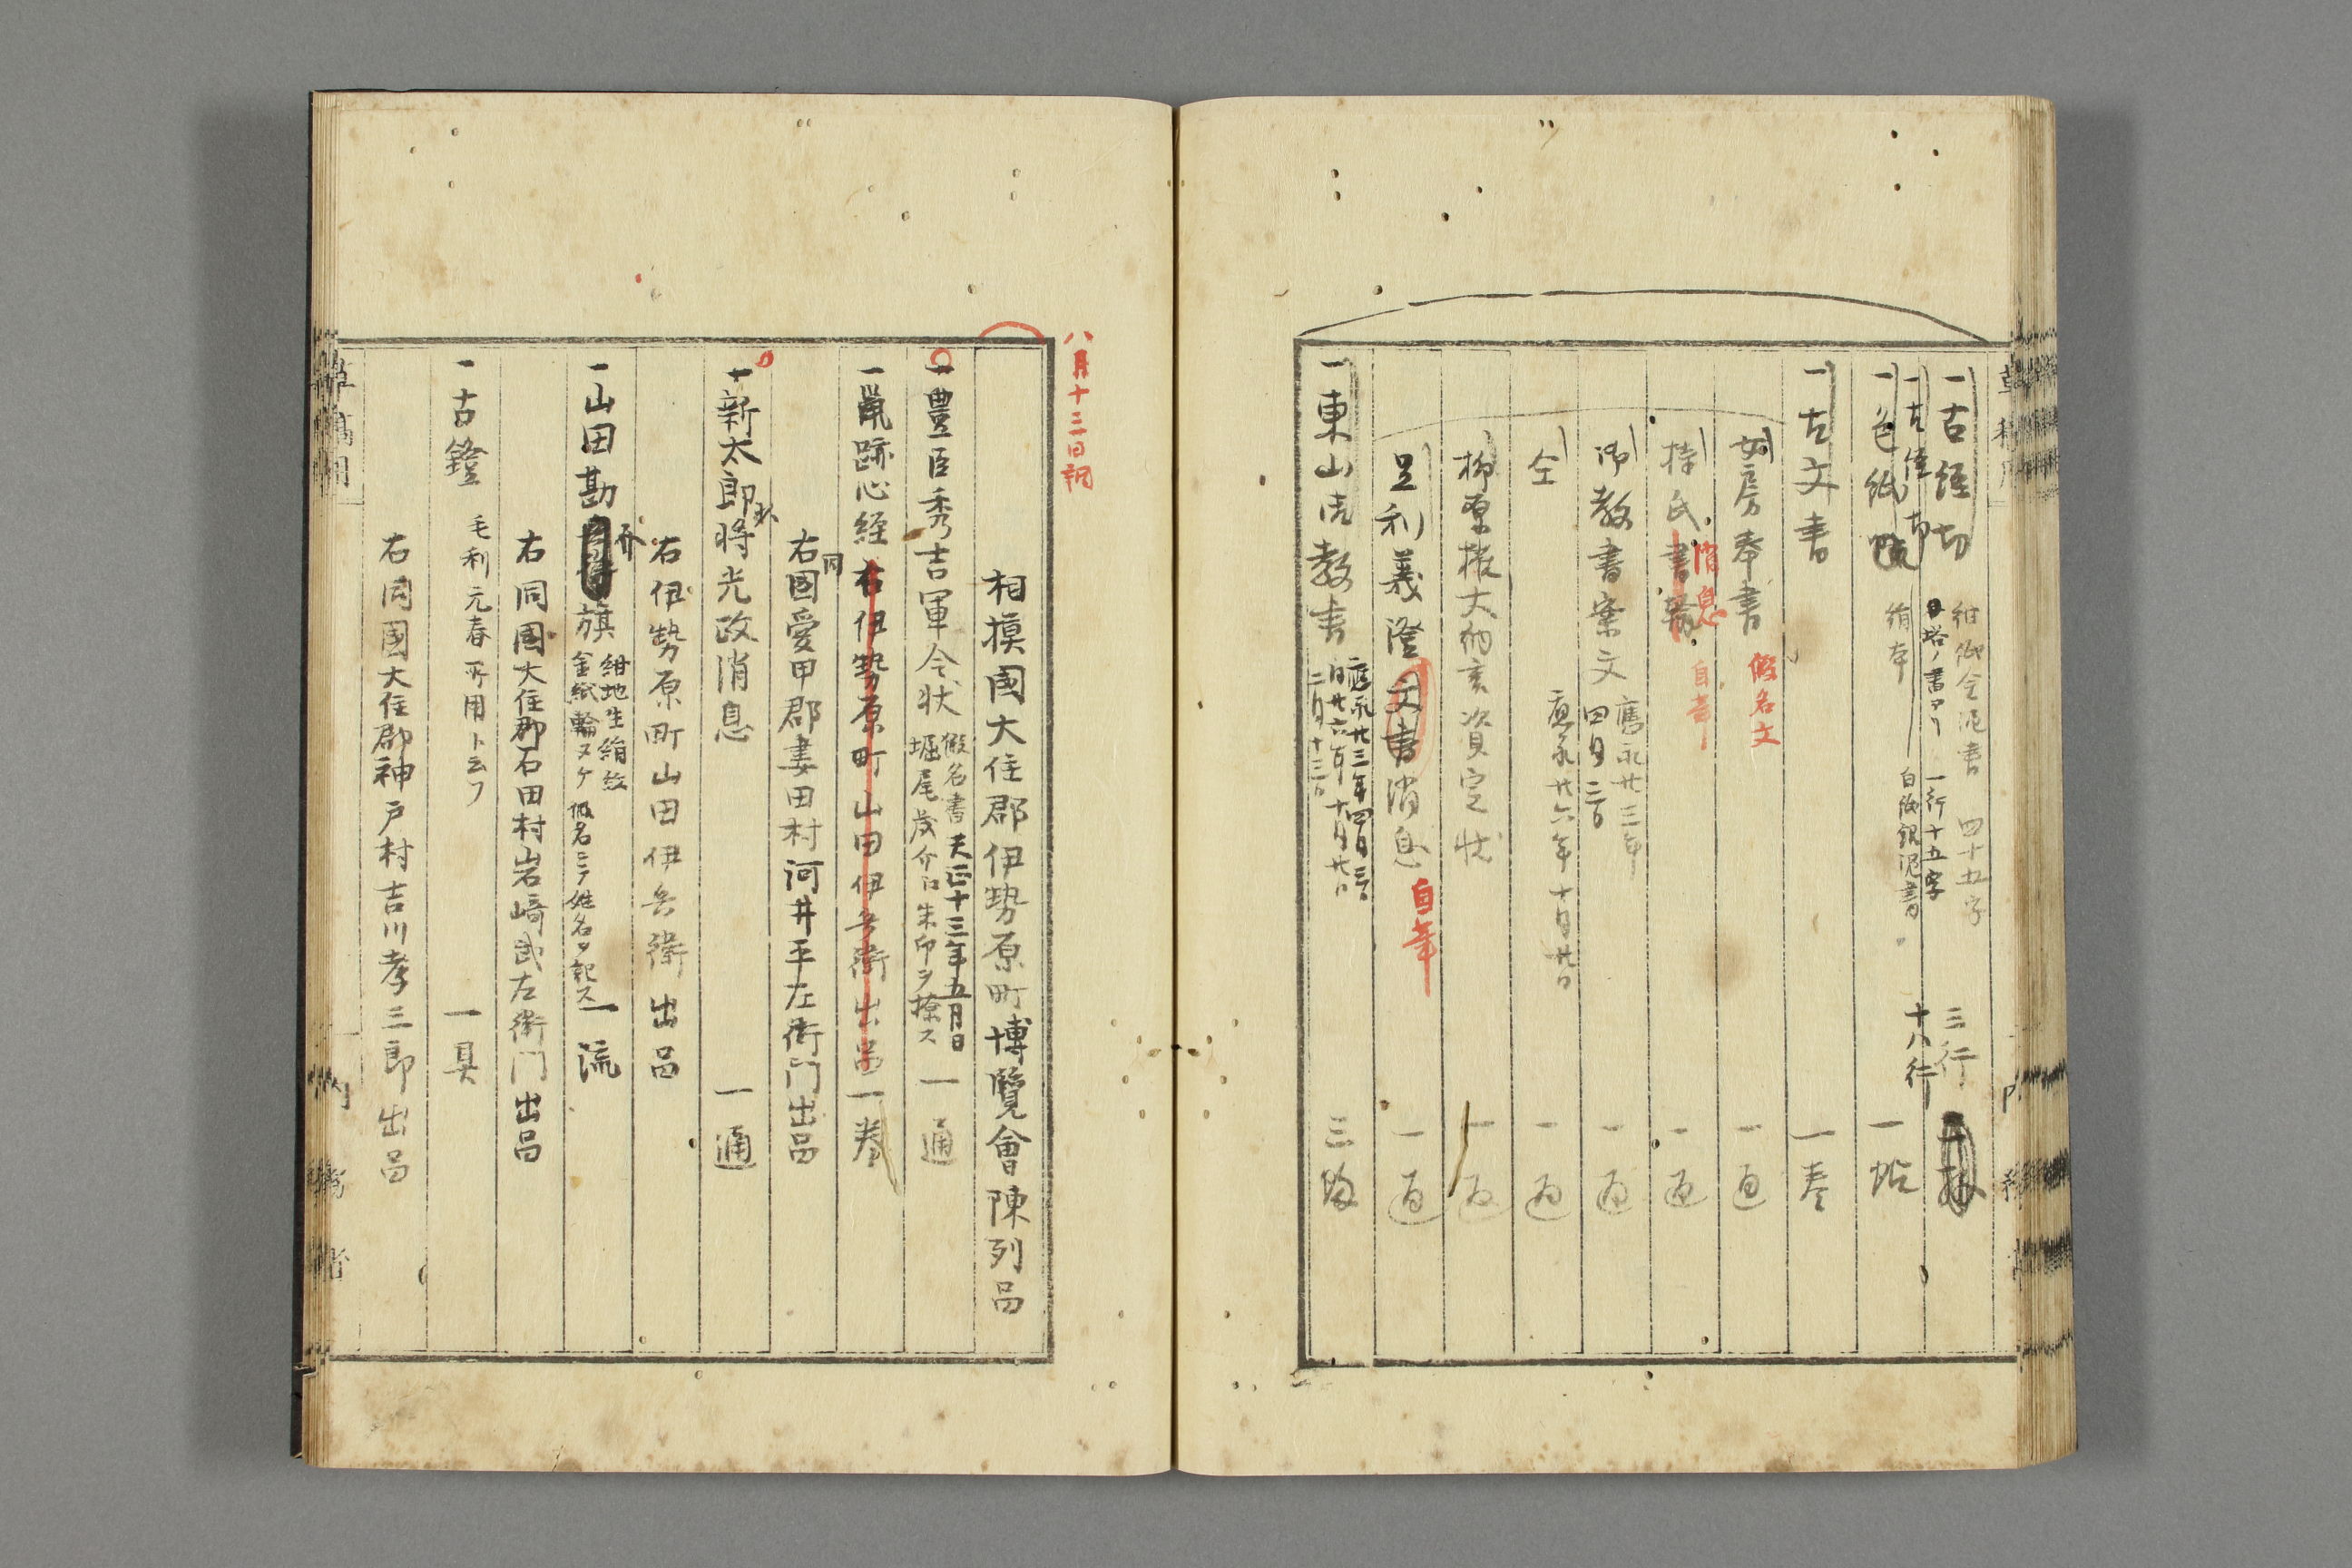 一古経切 紺紙金泥書 四十五字 三行
一古経切 日塔ノ書アリ 一行十五字 十八行
一色紙 絹本 白紙銀泥書 一帖
一古文書 一巻
女房奉書 假名文 一通
持氏書翰 消息 自筆 一通
御教書案文 應永廿三年四月三日 一通
仝 應永廿六年十月廿日 一通
柳原権大納言資定状 一通
足利義澄文書消息 自筆 一通
一東山御教書 應永廿三年四月三日 同廿六年十月廿日 二月十三日 三通
八月十三日調
相摸國大住郡伊勢原町博覽會陳列品
一豊臣秀吉軍令状 假名書 天正十三年五月日 堀尾茂介ロ朱印ヲ捺ス 一通
一鼠跡心経 右伊勢原町山田伊兵衛出品 一巻
右同國愛甲郡妻田村河井平左衛門出品
一新太郎少将光政消息 一通
右伊勢原町山田伊兵衛出品
一山田勘介旗 紺地生絹紋金紙輪ヌケ 假名ニテ姓名ヲ記ス 一流
右同國大住郡石田村岩﨑武左衛門出品
一古鐙 毛利元春所用ト云フ 一具
右同國大住郡神戸村吉川孝三郎出品
草稿用
内務省